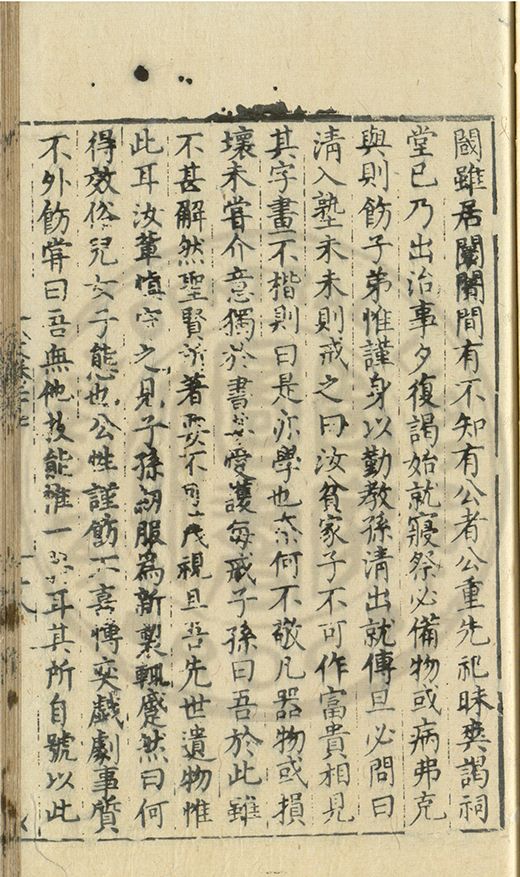 閾雖居闤闠間有不知有公者公重先祀昧爽謁祠
堂已乃出治事夕復謁始就寢祭必備物或病弗克
與則飭子弟惟謹身以勤教孫清出就傅旦必問曰
清入塾未未則戒之曰汝貧家子不可作富貴相見
其字畫不楷則曰是亦學也柰何不敬凡器物或損
壞未嘗介意獨於書甚愛護每戒子孫曰吾於此雖
不甚解然聖賢所著要不可䙝視且吾先世遺物惟
此耳汝輩慎守之見子孫初服為新製輒蹙然曰何
得效俗兒女子態也公性謹飭不喜博奕戲劇事質
不外飭嘗曰吾無他技能惟一 耳其所自號以此